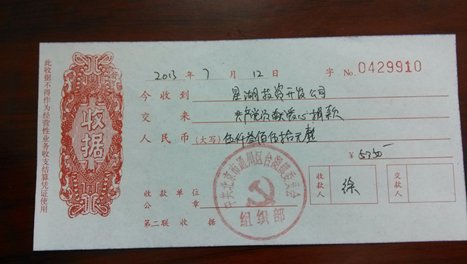 2013 年 7 月 12 日 字 No 0429910
今收到 星湖投资开发公司
交来 共产党员献爱心捐款
人民币 (大写) 伍仟叁佰伍拾元整
¥ 5350-
收款单位
公章
收款人 徐
交款人
第二联 收据
收据
此收据不得作为经营性业务收支结算凭证使用
中共北京市通州区台湖镇委员会
组织部